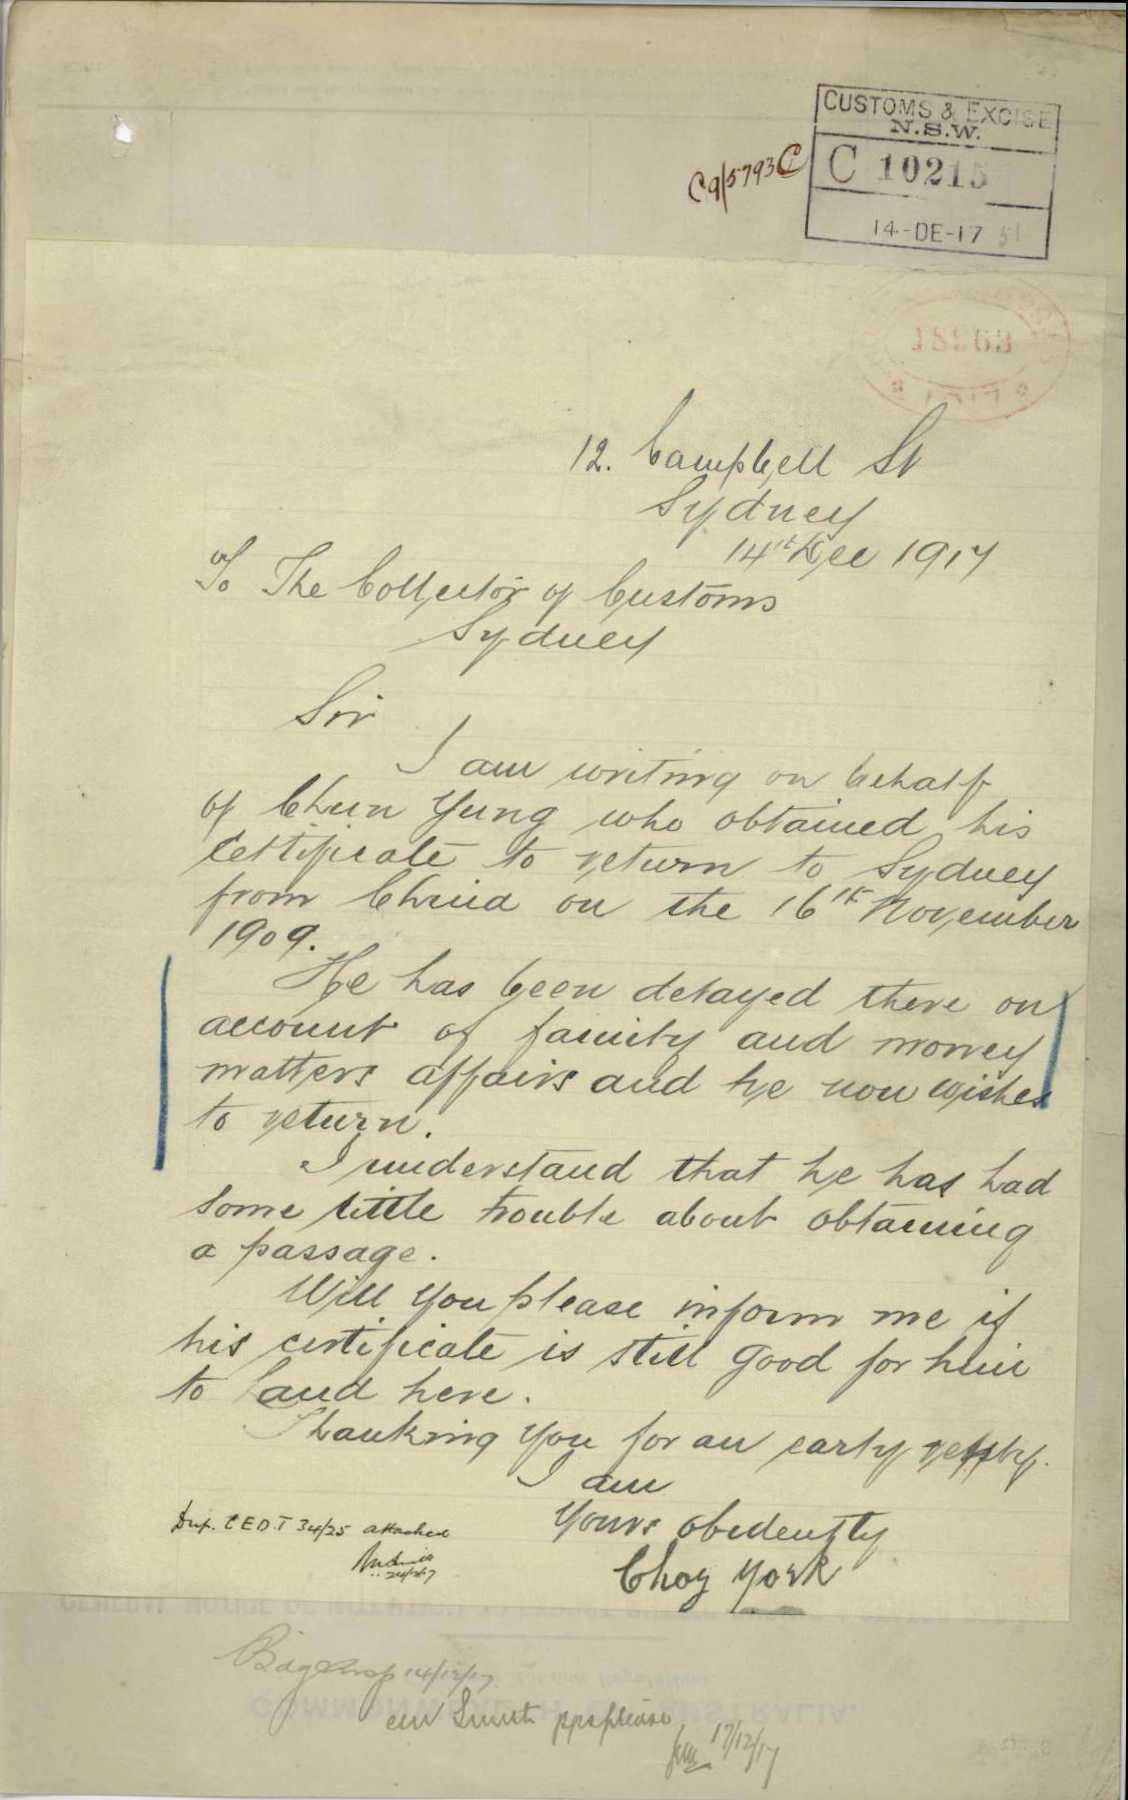 CUSTOMS & EXCISE
N.S.W.
C 10215
14-DE-17
C9/5793C
12. Campbell St
Sydney
14th Dec 1917
To The Collector of Customs
Sydney
Sir
I am writing on behalf
of Chun Yung who obtained his
Certificate to return to Sydney
from China on the 16th November
1909.
He has been delayed there on
account of family and money
matters affairs and he now wishes
to return.
I understand that he has had
some little trouble about obtaining
a passage.
Will you please inform me if
his certificate is still good for him
to land here.
Thanking you for an early reply.
I am
Yours obediently
Choy York
Dup. C E D T 34/25 attached
14/12/17
Smith pps please
17/12/17